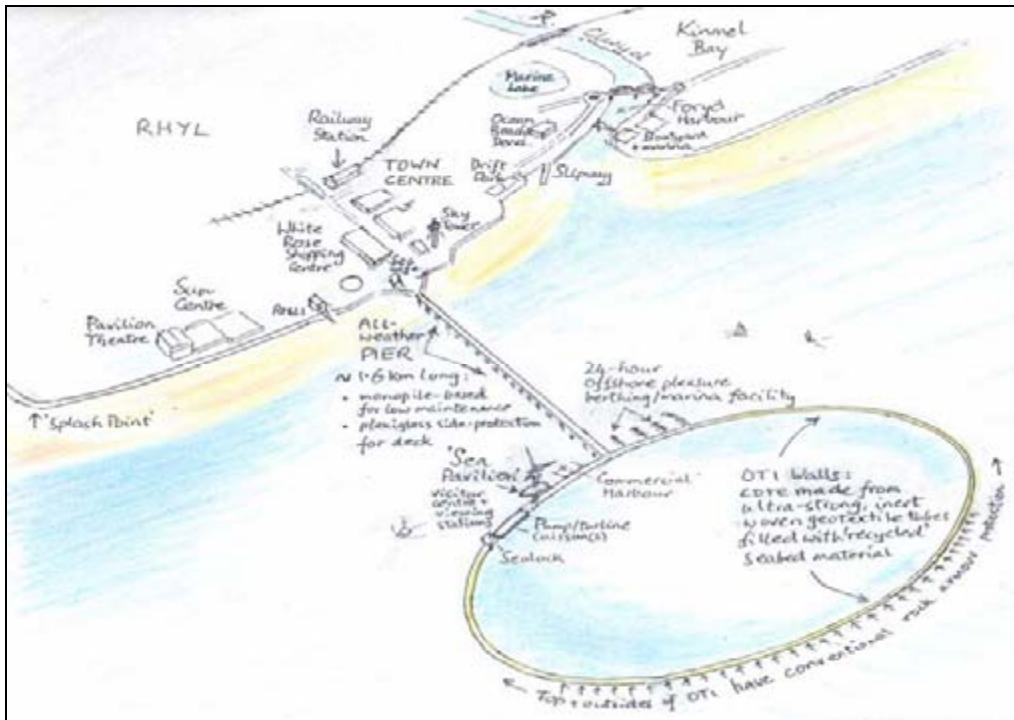 Kinmel
Bay
Clwyd
Marine
Lake
Foryd
Harbour
Boatyard
+ marina
Ocean
Beach
Devel.
RHYL
Railway
Station
TOWN
CENTRE
Drift
Park
Slipway
Sky
Tower
White
Rose
Shopping
Centre
Sun
Centre
Pavilion
Theatre
RNLI
'Splash Point'
ALL-
weather
PIER
~ 1·6 km long:
• monopile-based
for low maintenance
• plexiglass side-protection
for deck
24-hour
offshore pleasure
berthing/marina facility
'Sea
Pavilion'
visitor
centre +
viewing
stations
Commercial
Harbour
Pump/turbine
caisson(s)
Sealock
OTI Walls:
core made from
ultra-strong, inert
woven geotextile tubes
filled with 'recycled'
seabed material
Top + outsides of OTI have conventional rock armour protection